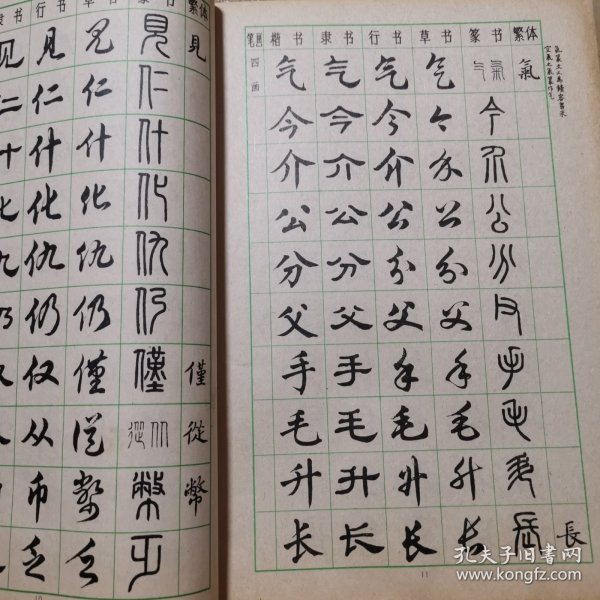 隶书 行书 草书 篆书 繁体
见 見 见 見 見
仁 仁 仁 仁
什 什 什 什
化 化 化 化
仇 仇 仇 仇
仍 仍 仍 仍
仅 仅 僅 僅 僅
从 从 從 從 从 從
币 币 幣 幣 幣
乏 乏 乏 乏
10
笔画 楷书 隶书 行书 草书 篆书 繁体
四画 气 气 气 气 气 氣 氣
今 今 今 今 今
介 介 介 介 介
公 公 公 公 公
分 分 分 分 分
父 父 父 父 父
手 手 手 手 手
毛 毛 毛 毛 毛
升 升 升 升 升
长 长 长 长 長 長
11
孔夫子旧书网
www.kongfz.com